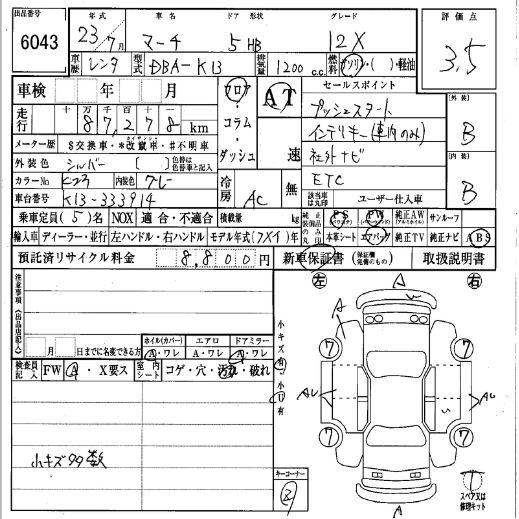 出品番号 6043
年式 23/7月 車名 マーチ ドア 形状 5 HB グレード 12X
車歴 レンタ 型式 DBA-K13 排気量 1200 c.c. 燃料 ガソリン・( )・軽油
評価点 3.5
車検 年 月
フロア・コラム・ダッシュ
AT 速
セールスポイント
プッシュスタート
インテリキー(車内のみ)
社外ナビ
ETC
[外装] B
[内装] B
走行 十 万 千 百 十 一
87,278 km
メーター歴 $交換車・*改竄車・#不明車
外装色 シルバー [ ] 色替は色替車名と記入
カラーNo K23 内装色 グレー
車台番号 K13-333914
冷房 AC 無
該当車は丸印 ユーザー仕入車
乗車定員 (5)名 NOX 適合・不適合 積載量 kg
純正装備品のみ丸印 PS PW 純正AW サンルーフ
輸入車 ディーラー・並行 左ハンドル・右ハンドル モデル年式( )年
本革シート エアバッグ 純正TV 純正ナビ ABS
預託済リサイクル料金 8,800円
新車保証書 (保証継続車のもの) 取扱説明書
注意事項(出品店記入)
左 右
月 日までに名変できる方
ホイル(カバー) エアロ ドアミラー
A・ワレ A・ワレ A・ワレ
検査員記入 FW A・X要ス 室内シート コゲ・穴・汚れ・破れ
小キズ有 小凹有
小キズ99数
コーナー
A
A
7 7
AU AU
7 7
A
スペア又は修理キット